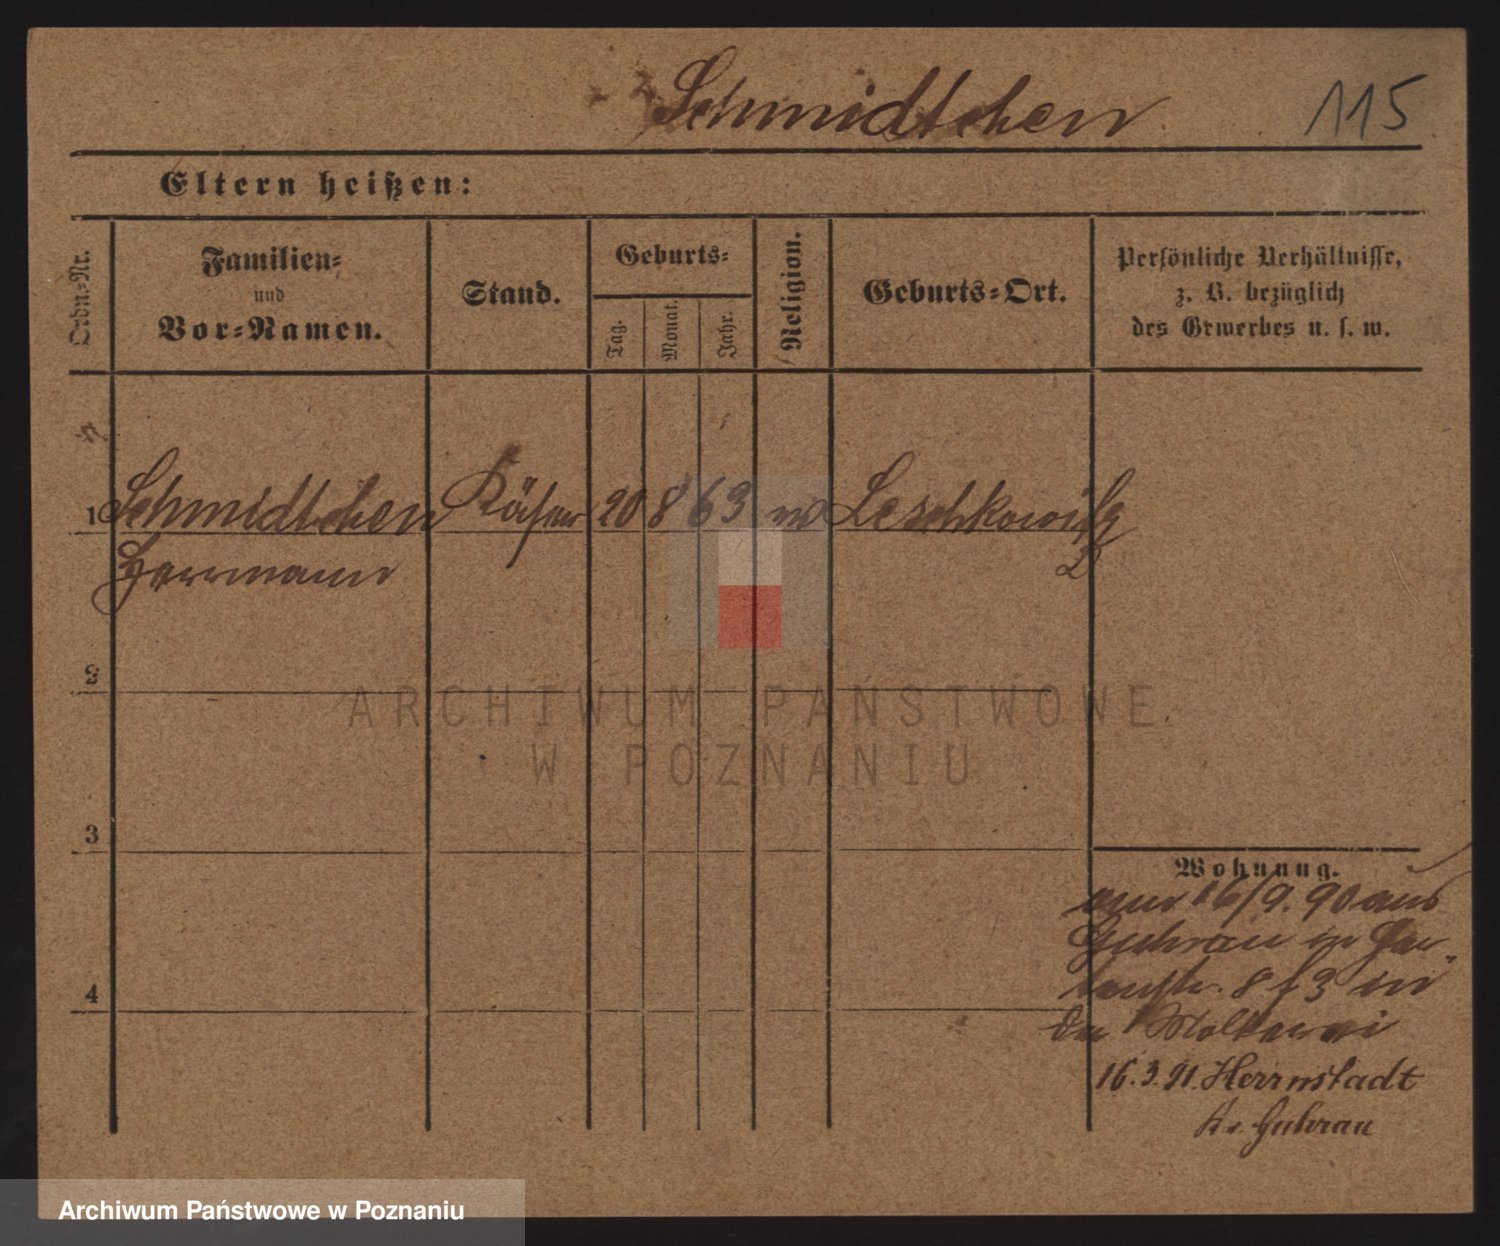 Schmidtchen
115
Eltern heißen:
Ordn.-Nr.
Familien-
und
Vor-Namen.
Stand.
Geburts-
Tag.
Monat.
Jahr.
Religion.
Geburts-Ort.
Persönliche Verhältnisse,
z. B. bezüglich
des Gewerbes u. s. w.
1 Schmidtchen Käser 20 8 63 Leschkowitz
Herrmann
2
3
4
Wohnung.
16/9. 90 aus
Guhrau in
8 f 3 in
der Molkerei
16.3.91. Herrnstadt
Kr. Guhrau
ARCHIWUM PAŃSTWOWE
W POZNANIU
Archiwum Państwowe w Poznaniu